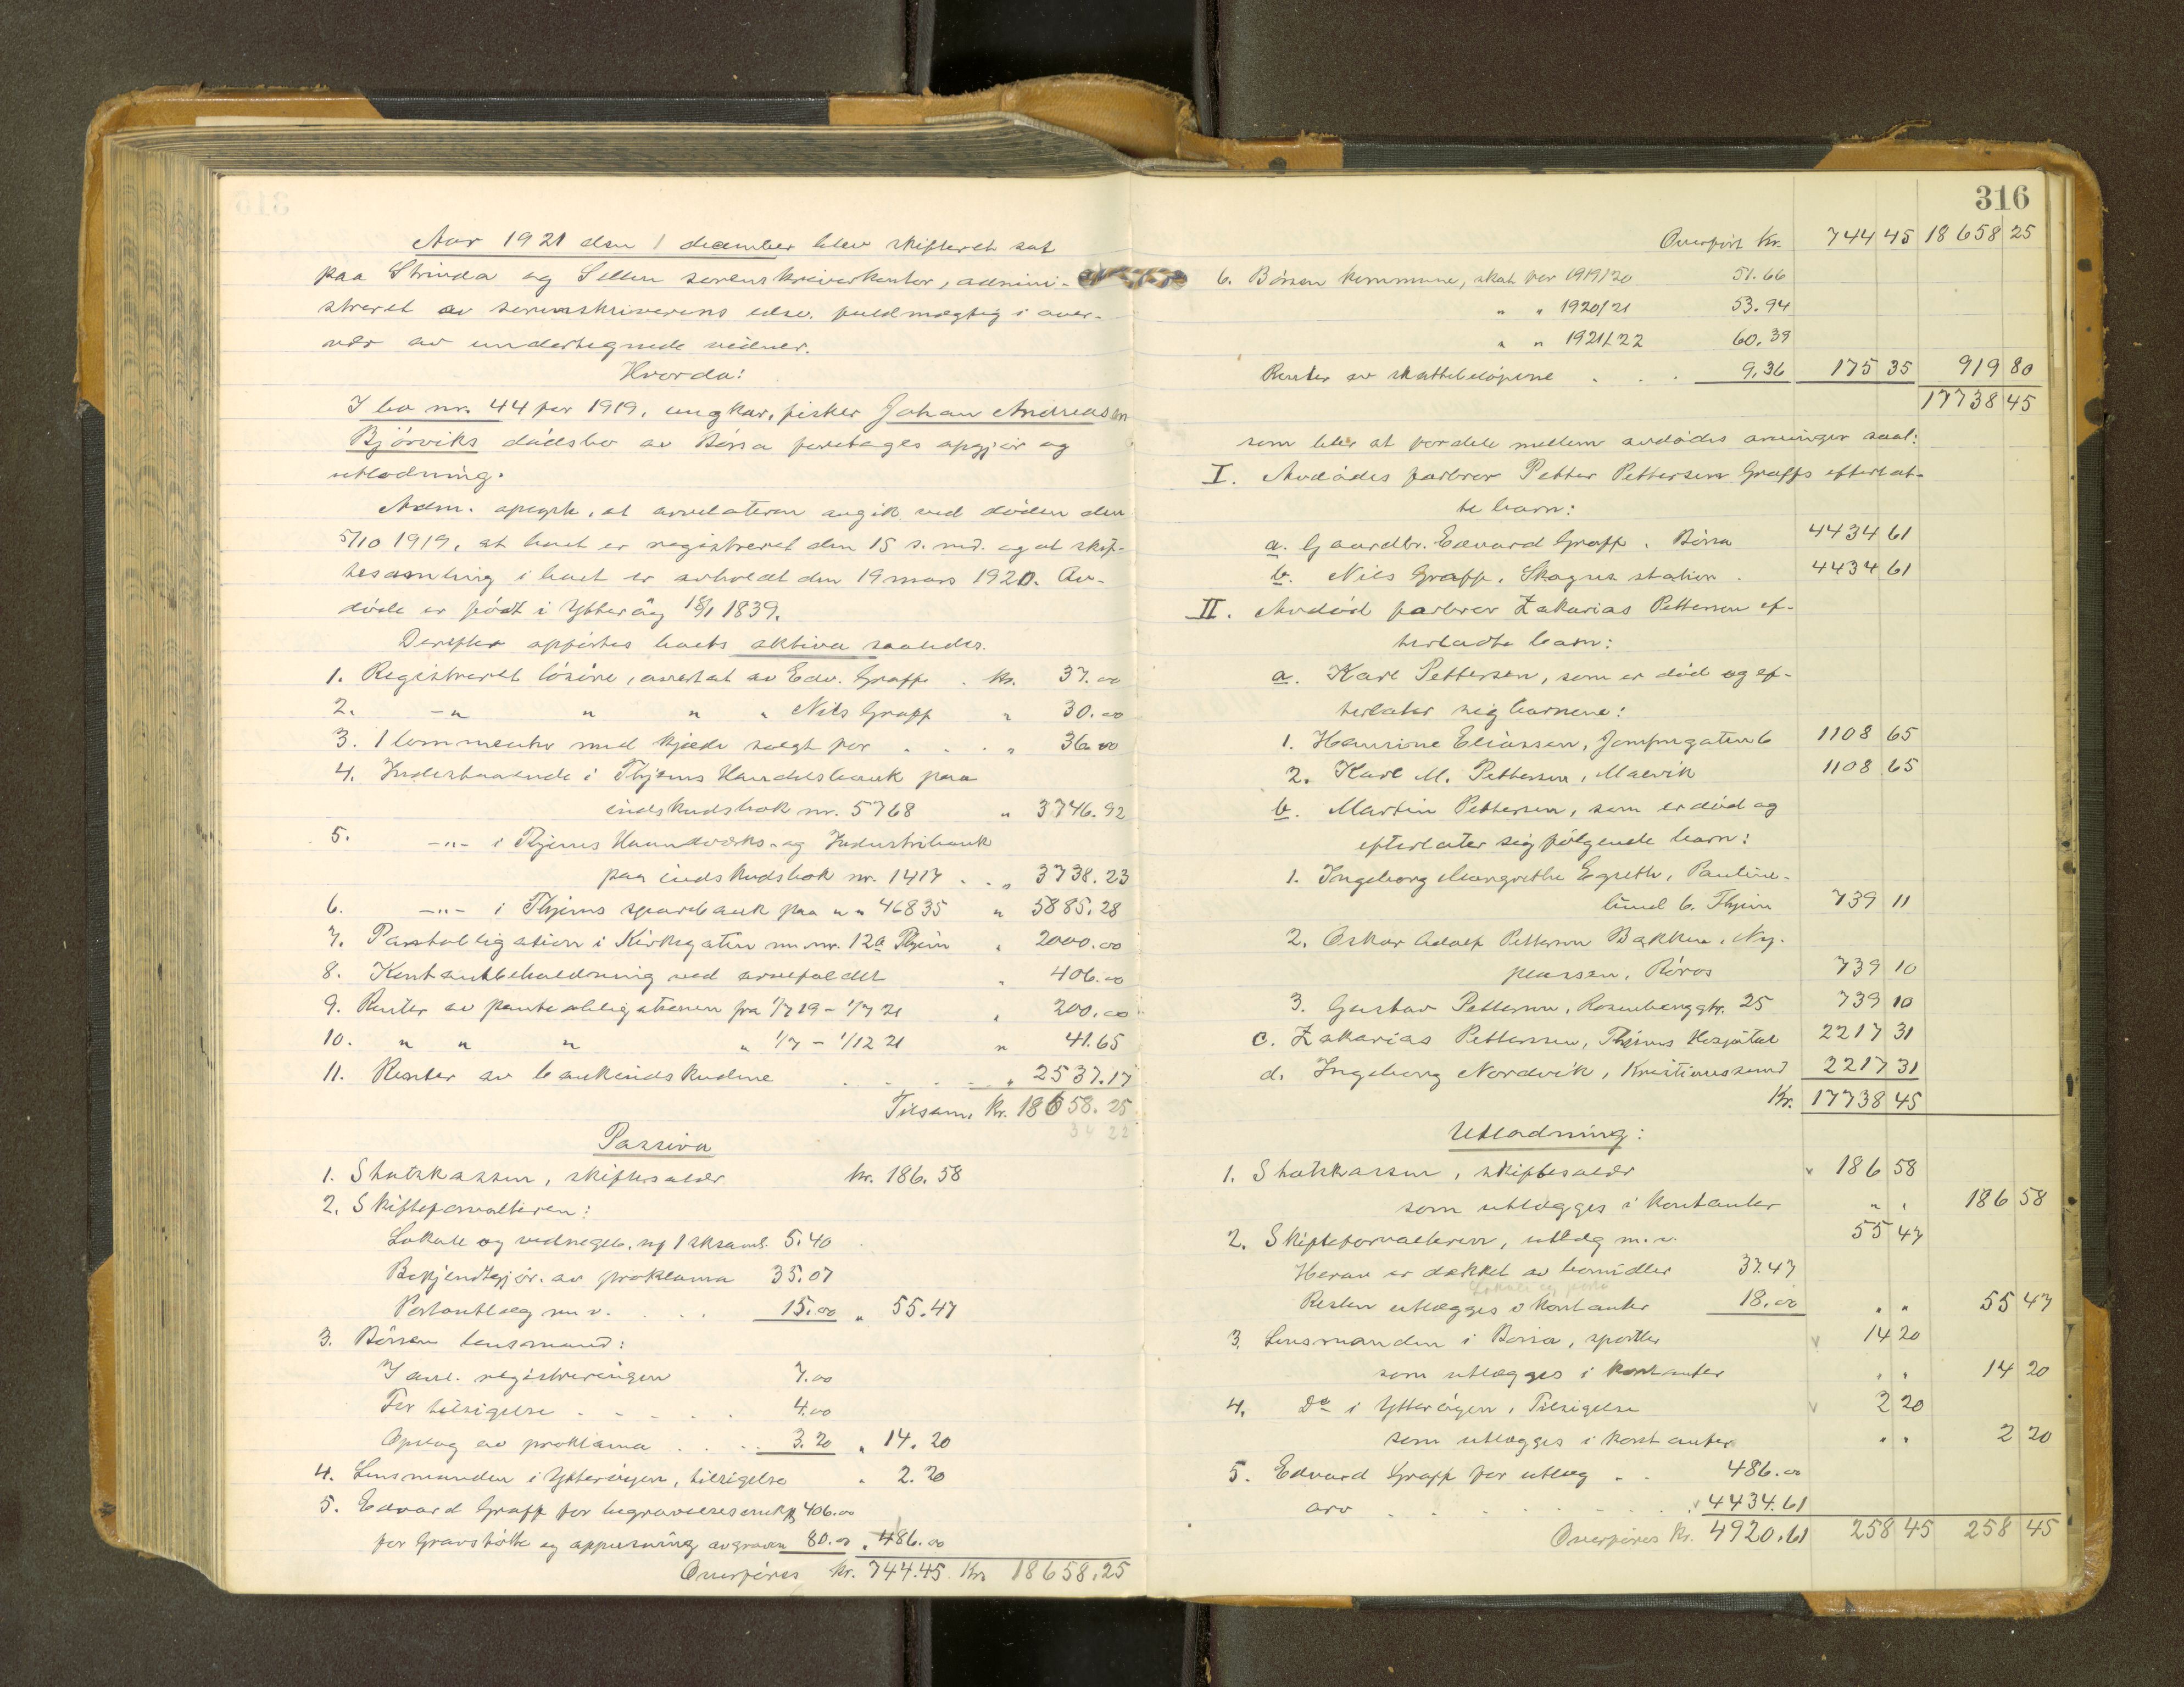 Aar 1921 den 1 december blev skifteret sat
paa Strinda og Selbu sorenskriverkontor, admini-
streret av sorenskriverens edsv. fuldmægtig i over-
vær av undertegnede vidner.
Hvorda:
I bo nr. 44 for 1919, ungkar, fisker Johan Andreassen
Bjørviks dødsbo av Børsa foretages opgjør og
utlodning.
Adm. opgyr, at arvelateren avgik ved døden den
5/10 1919, at boet er registreret den 15 s. md. og at skif-
tesamling i boet er avholdt den 19 mars 1920. Av-
døde er født i Ytterøy 18/1 1839.
Derefter opførtes boets aktiva saaledes.
1. Registreret løsøre, overtat av Edv. Graff . kr. 37.00
2. -"- " " " Nils Graff " 30.00
3. 1 lommeuhr med kjæde solgt for . . . " 36.00
4. Indestaaende i Thjems Handelsbank paa
indskudsbok nr. 5768 " 3746.92
5. -"- i Thjems Haandværks- og Industribank
paa indskudsbok nr. 1417 . . " 3738.23
6. -"- i Thjems sparebank paa " " 46835 " 5885.28
7. Pantobligation i Kirkegaten nr. 12a Thjem " 2000.00
8. Kontantbeholdning ved arvefaldet " 406.00
9. Renter av panteobligationen fra 1/7 19 - 1/7 21 " 200.00
10. " " " " 1/7 - 1/12 21 " 41.65
11. Renter av bankindskudene . . . . " 2537.17
Tilsam. kr. 18658.25
34 22
Passiva
1. Statskassen, skiftesalær kr. 186.58
2. Skifteforvalteren:
Lokale og vidnegeb. 1 sksaml. 5.40
Bekjendtgjør. av proklama 35.07
Portoutlæg m.v. . . . 15.00 " 55.47
3. Børsen lensmand:
I anl. registreringen 7.00
For tilsigelse . . . . . 4.00
Opslag av proklama . . . . 3.20 " 14.20
4. Lensmanden i Ytterøyen, tilsigelse " 2.20
5. Edvard Graff for begravelsesomk. 406.00
for Gravstøtte og oppusning av graven 80.00 " 486.00
Overføres kr. 744.45 Kr. 18658.25
316
Overført kr. 744 45 18658 25
6. Børsen kommune, skat for 1919/20 51.66
" " 1920/21 53.94
" " 1921/22 60.39
Renter av skattebeløpene . . . 9.36 175 35 919 80
17738 45
som blir at fordele mellem avdødes arvinger saal:
I. Avdødes farbror Petter Pettersen Graffs efterlat-
te barn:
a. Gaardbr. Edvard Graff . Børsa 4434 61
b. Nils Graff, Skogns station . 4434 61
II. Avdød farbror Zakarias Pettersen ef-
terladte barn:
a. Karl Pettersen, som er død og ef-
terlater sig barnene:
1. Hansine Eliassen, Jomfrugaten 6 1108 65
2. Karl M. Pettersen, Malvik 1108 65
b. Martin Pettersen, som er død og
efterlater sig følgende barn:
1. Ingeborg Margrethe Egseth, Pauline-
lund 6. Thjem 739 11
2. Oskar Adolf Pettersen Bakken, Ny-
plassen, Røros 739 10
3. Gustav Pettersen, Rosenborggt. 25 739 10
c. Zakarias Pettersen, Thjems Hospital 2217 31
d. Ingeborg Nordvik, Kristianssund 2217 31
Kr. 17738 45
Utlodning:
1. Statskassen, skiftesalær 186 58
som utlægges i kontanter " " 186 58
2. Skifteforvalteren, utlæg m.v. 55 47
Herav er dækket av bomidler 37.47
Lokale og porto
Resten utlægges i kontanter 18.00 " " 55 47
3. Lensmanden i Børsa, sportler 14 20
som utlægges i kontanter " " 14 20
4. Do i Ytterøyen, Tilsigelse 2 20
som utlægges i kontanter " " 2 20
5. Edvard Graff for utlæg . . 486.00
arv . . . . . . 4434.61
Overføres Kr. 4920.61 258 45 258 45